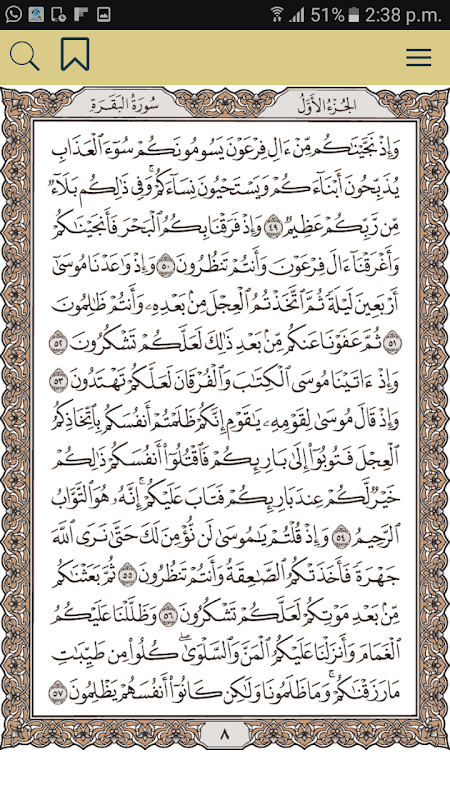 51% 2:38 p.m.
سُورَةُ البَقَرَةِ الجُزْءُ الأَوَّلُ
وَإِذْ نَجَّيْنَٰكُم مِّنْ ءَالِ فِرْعَوْنَ يَسُومُونَكُمْ سُوٓءَ ٱلْعَذَابِ
يُذَبِّحُونَ أَبْنَآءَكُمْ وَيَسْتَحْيُونَ نِسَآءَكُمْ ۚ وَفِى ذَٰلِكُم بَلَآءٌ
مِّن رَّبِّكُمْ عَظِيمٌ ٤٩ وَإِذْ فَرَقْنَا بِكُمُ ٱلْبَحْرَ فَأَنجَيْنَٰكُمْ
وَأَغْرَقْنَآ ءَالَ فِرْعَوْنَ وَأَنتُمْ تَنظُرُونَ ٥٠ وَإِذْ وَٰعَدْنَا مُوسَىٰٓ
أَرْبَعِينَ لَيْلَةً ثُمَّ ٱتَّخَذْتُمُ ٱلْعِجْلَ مِنۢ بَعْدِهِۦ وَأَنتُمْ ظَٰلِمُونَ
٥١ ثُمَّ عَفَوْنَا عَنكُم مِّنۢ بَعْدِ ذَٰلِكَ لَعَلَّكُمْ تَشْكُرُونَ ٥٢
وَإِذْ ءَاتَيْنَا مُوسَى ٱلْكِتَٰبَ وَٱلْفُرْقَانَ لَعَلَّكُمْ تَهْتَدُونَ ٥٣
وَإِذْ قَالَ مُوسَىٰ لِقَوْمِهِۦ يَٰقَوْمِ إِنَّكُمْ ظَلَمْتُمْ أَنفُسَكُم بِٱتِّخَاذِكُمُ
ٱلْعِجْلَ فَتُوبُوٓا۟ إِلَىٰ بَارِئِكُمْ فَٱقْتُلُوٓا۟ أَنفُسَكُمْ ذَٰلِكُمْ
خَيْرٌ لَّكُمْ عِندَ بَارِئِكُمْ فَتَابَ عَلَيْكُمْ ۚ إِنَّهُۥ هُوَ ٱلتَّوَّابُ
ٱلرَّحِيمُ ٥٤ وَإِذْ قُلْتُمْ يَٰمُوسَىٰ لَن نُّؤْمِنَ لَكَ حَتَّىٰ نَرَى ٱللَّهَ
جَهْرَةً فَأَخَذَتْكُمُ ٱلصَّٰعِقَةُ وَأَنتُمْ تَنظُرُونَ ٥٥ ثُمَّ بَعَثْنَٰكُم
مِّنۢ بَعْدِ مَوْتِكُمْ لَعَلَّكُمْ تَشْكُرُونَ ٥٦ وَظَلَّلْنَا عَلَيْكُمُ
ٱلْغَمَامَ وَأَنزَلْنَا عَلَيْكُمُ ٱلْمَنَّ وَٱلسَّلْوَىٰ ۖ كُلُوا۟ مِن طَيِّبَٰتِ
مَا رَزَقْنَٰكُمْ ۖ وَمَا ظَلَمُونَا وَلَٰكِن كَانُوٓا۟ أَنفُسَهُمْ يَظْلِمُونَ ٥٧
٨